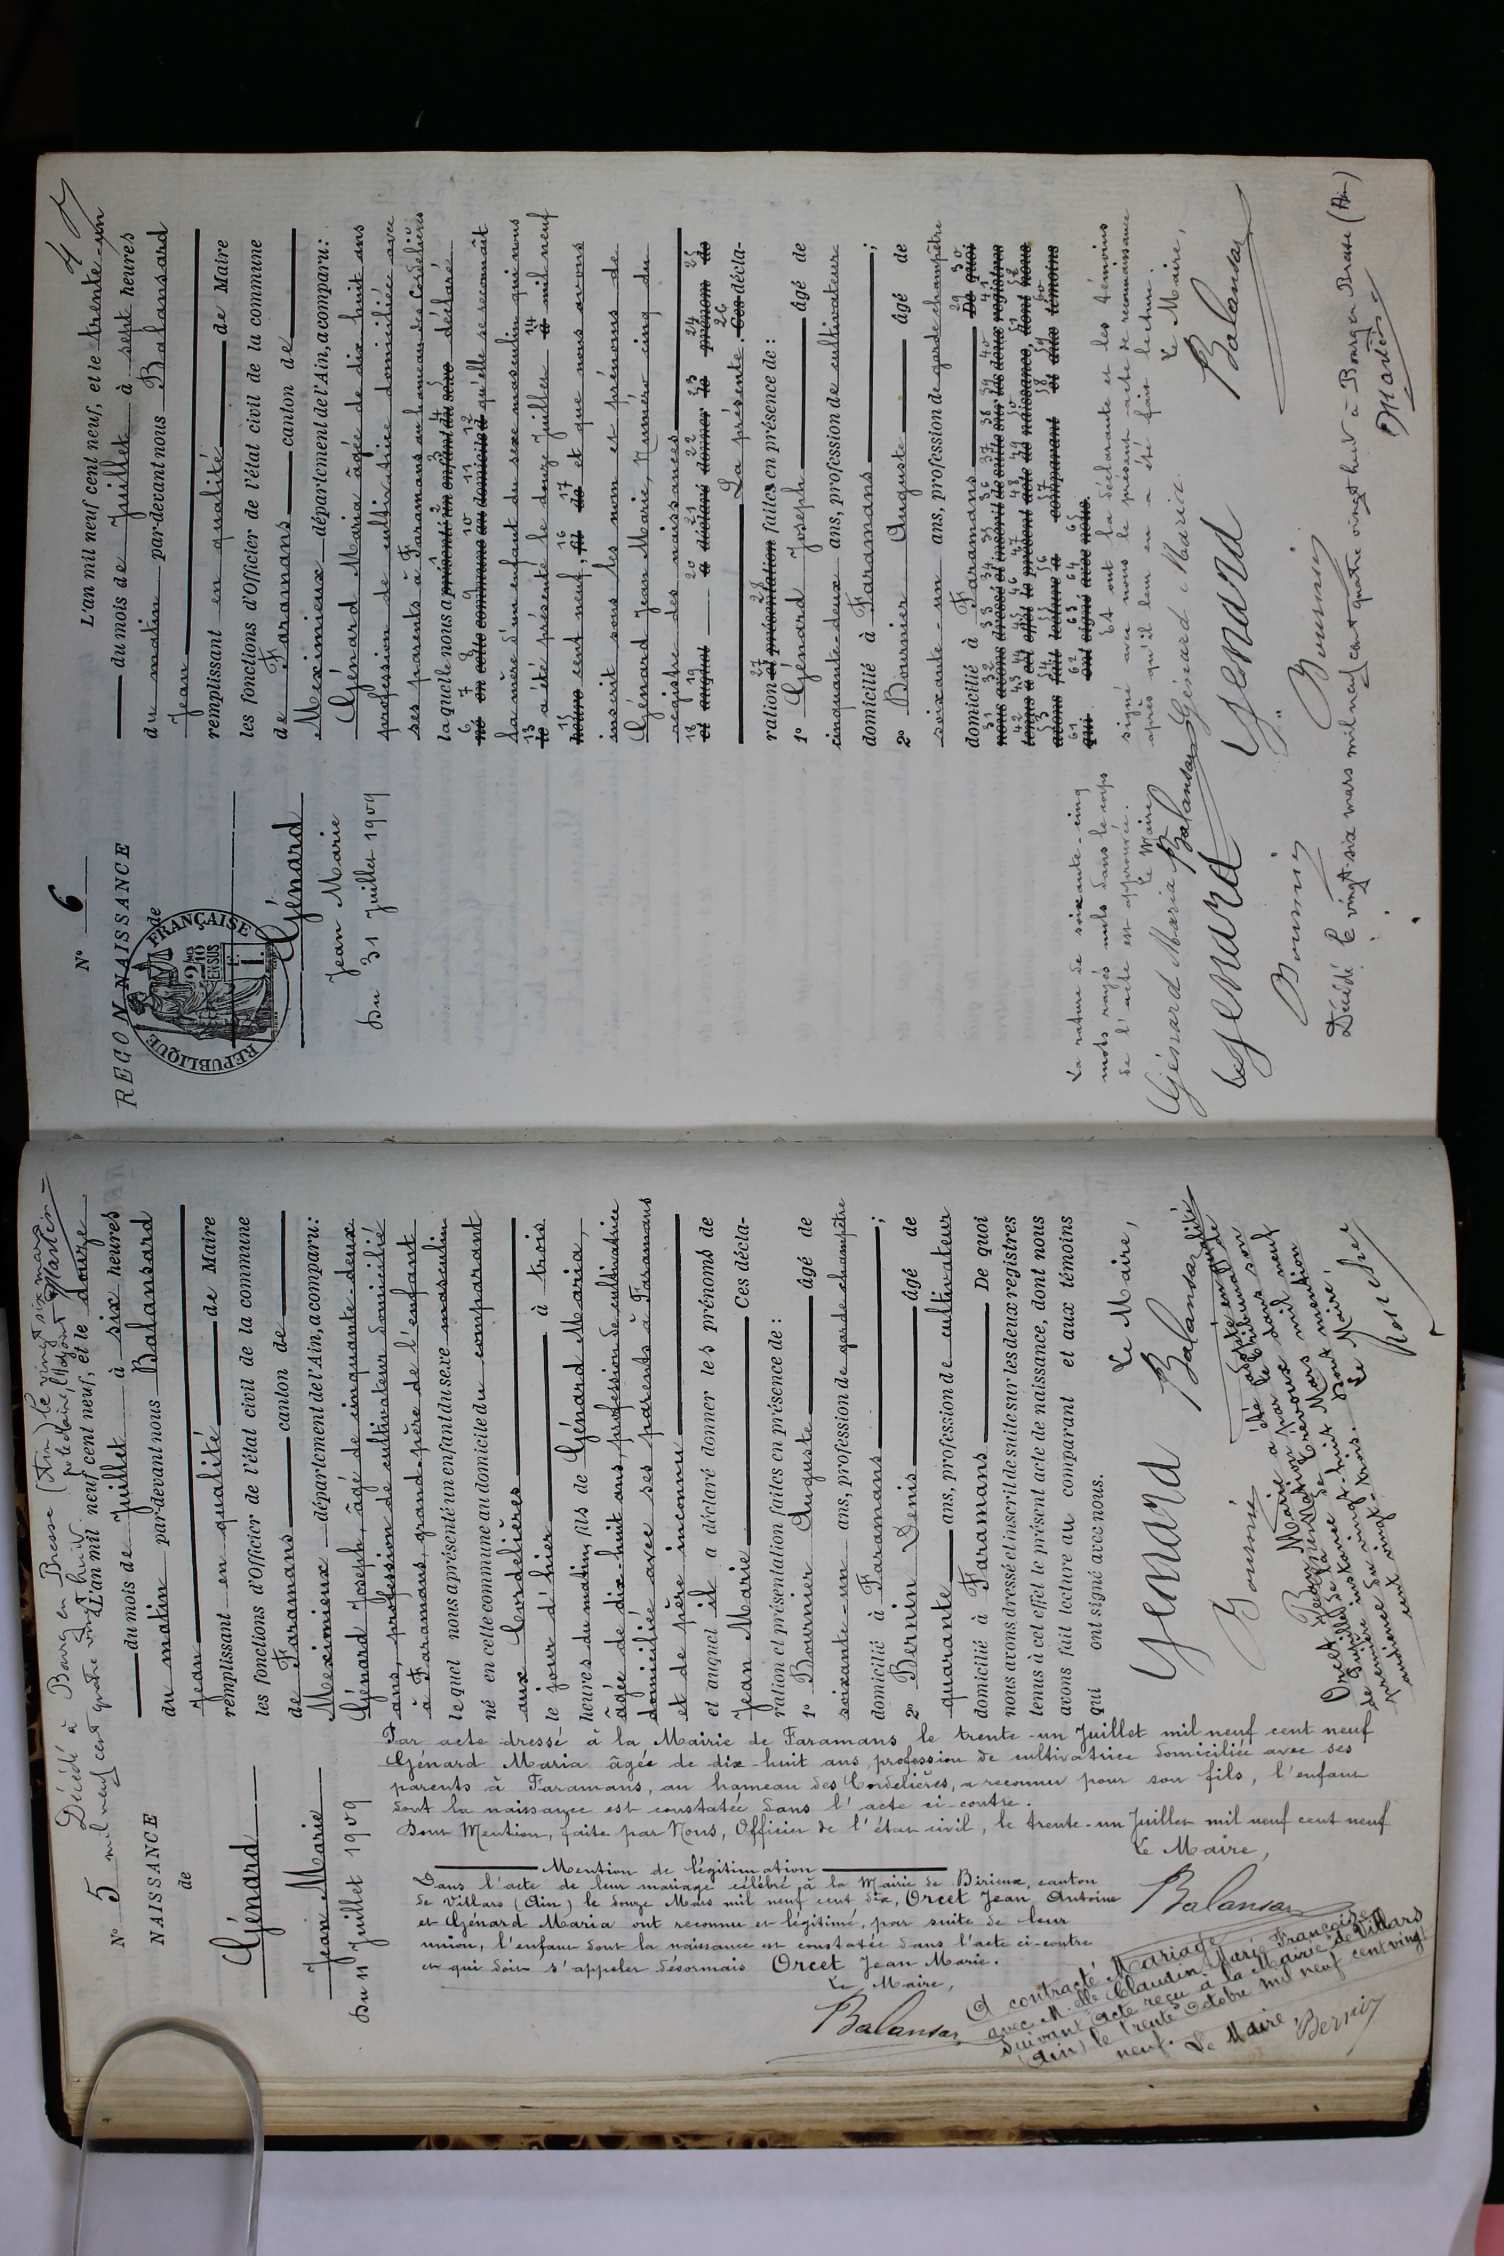 Décédé à Bourg en Bresse (Ain) le vingt six mars
mil neuf cent quatre vingt huit.
Martin
N° 5
NAISSANCE
de
Génard
Jean Marie
Du 11 Juillet 1909
L'an mil neuf cent neuf, et le douze
du mois de Juillet à six heures
du matin par-devant nous Balansard
Jean
remplissant en qualité de Maire
les fonctions d'Officier de l'état civil de la commune
de Faramans canton de
Meximieux département de l'Ain, a comparu:
Génard Joseph, âgé de cinquante-deux
ans, profession de cultivateur domicilié
à Faramans, grand-père de l'enfant
lequel nous a présenté un enfant du sexe masculin
né en cette commune au domicile du comparant
aux Cordelières
le jour d'hier à trois
heures du matin, fils de Génard Maria,
âgée de dix-huit ans, profession de cultivatrice
domiciliée avec ses parents à Faramans
et de père inconnu
et auquel il a déclaré donner les prénoms de
Jean Marie Ces décla-
ration et présentation faites en présence de:
1° Bournier Auguste âgé de
soixante-un ans, profession de garde champêtre
domicilié à Faramans;
2° Bernin Denis âgé de
quarante ans, profession de cultivateur
domicilié à Faramans De quoi
nous avons dressé et inscrit de suite sur les deux registres
tenus à cet effet le présent acte de naissance, dont nous
avons fait lecture au comparant et aux témoins
qui ont signé avec nous.
Le Maire,
Genard Balansard
Par acte dressé à la Mairie de Faramans le trente-un Juillet mil neuf cent neuf
Génard Maria âgée de dix-huit ans, profession de cultivatrice domiciliée avec ses
parents à Faramans, au hameau des Cordelières, a reconnu pour son fils, l'enfant
dont la naissance est constatée dans l'acte ci-contre.
Dont Mention, faite par Nous, Officier de l'état civil, le trente-un Juillet mil neuf cent neuf
Le Maire,
Balansard
Mention de légitimation
Dans l'acte de leur mariage célébré à la Mairie de Birieux, canton
de Villars (Ain) le douze Mars mil neuf cent dix, Orcet Jean Antoine
et Génard Maria ont reconnu et légitimé, par suite de leur
union, l'enfant dont la naissance est constatée dans l'acte ci-contre
et qui doit s'appeler désormais Orcet Jean Marie.
Le Maire,
Balansard
A contracté Mariage
avec Melle Claudin Marie Françoise
suivant acte reçu à la Mairie de Villars
(Ain) le trente Octobre mil neuf cent vingt
neuf. Le Maire,
Bernin
Orcet Jean Marie a été adopté en qualité de
Pupille de la Nation par le tribunal
de première instance de Trévoux dans son
audience du vingt-huit Mars mil neuf
cent vingt-trois. Dont mention
Le Maire,
N° 6
RECONNAISSANCE
de
REPUBLIQUE FRANÇAISE
Génard
Jean Marie
Du 31 Juillet 1909
L'an mil neuf cent neuf, et le trente-un
du mois de Juillet à sept heures
du matin par-devant nous Balansard
Jean
remplissant en qualité de Maire
les fonctions d'Officier de l'état civil de la commune
de Faramans canton de
Meximieux département de l'Ain, a comparu:
Génard Maria âgée de dix-huit ans
profession de cultivatrice domiciliée avec
ses parents à Faramans au hameau des Cordelières
laquelle nous a présenté un enfant du sexe déclaré
né en cette commune au domicile d qu'elle se reconnaît
la mère d'un enfant du sexe masculin qui nous
le a été présenté le douze Juillet à mil neuf
heures cent neuf, fil de et que nous avons
inscrit sous les nom et prénoms de
Génard Jean Marie, Numéro cinq du
registre des naissances
et auquel a déclaré donner le prénom de
La présente. Ces décla-
ration et présentation faites en présence de:
1° Génard Joseph âgé de
cinquante-deux ans, profession de cultivateur
domicilié à Faramans;
2° Bournier Auguste âgé de
soixante-un ans, profession de garde champêtre
domicilié à Faramans De quoi
nous avons dressé et inscrit de suite sur les deux registres
tenus à cet effet le présent acte de naissance, dont nous
avons fait lecture à comparant et dits témoins
qui ont signé avec nous.
Et ont la déclarante et les témoins
signé avec nous le présent acte de reconnaissance
après qu'il leur en a été fait lecture.
Le Maire,
Génard Maria Balansard
Genard
Bournier
La rature de soixante-cinq
mots rayés nuls dans le corps
de l'acte est approuvée.
Le Maire
Génard Maria Balansard
Genard
Bournier
Décédé le vingt-six mars mil neuf cent quatre vingt huit à Bourg en Bresse (Ain)
Martin